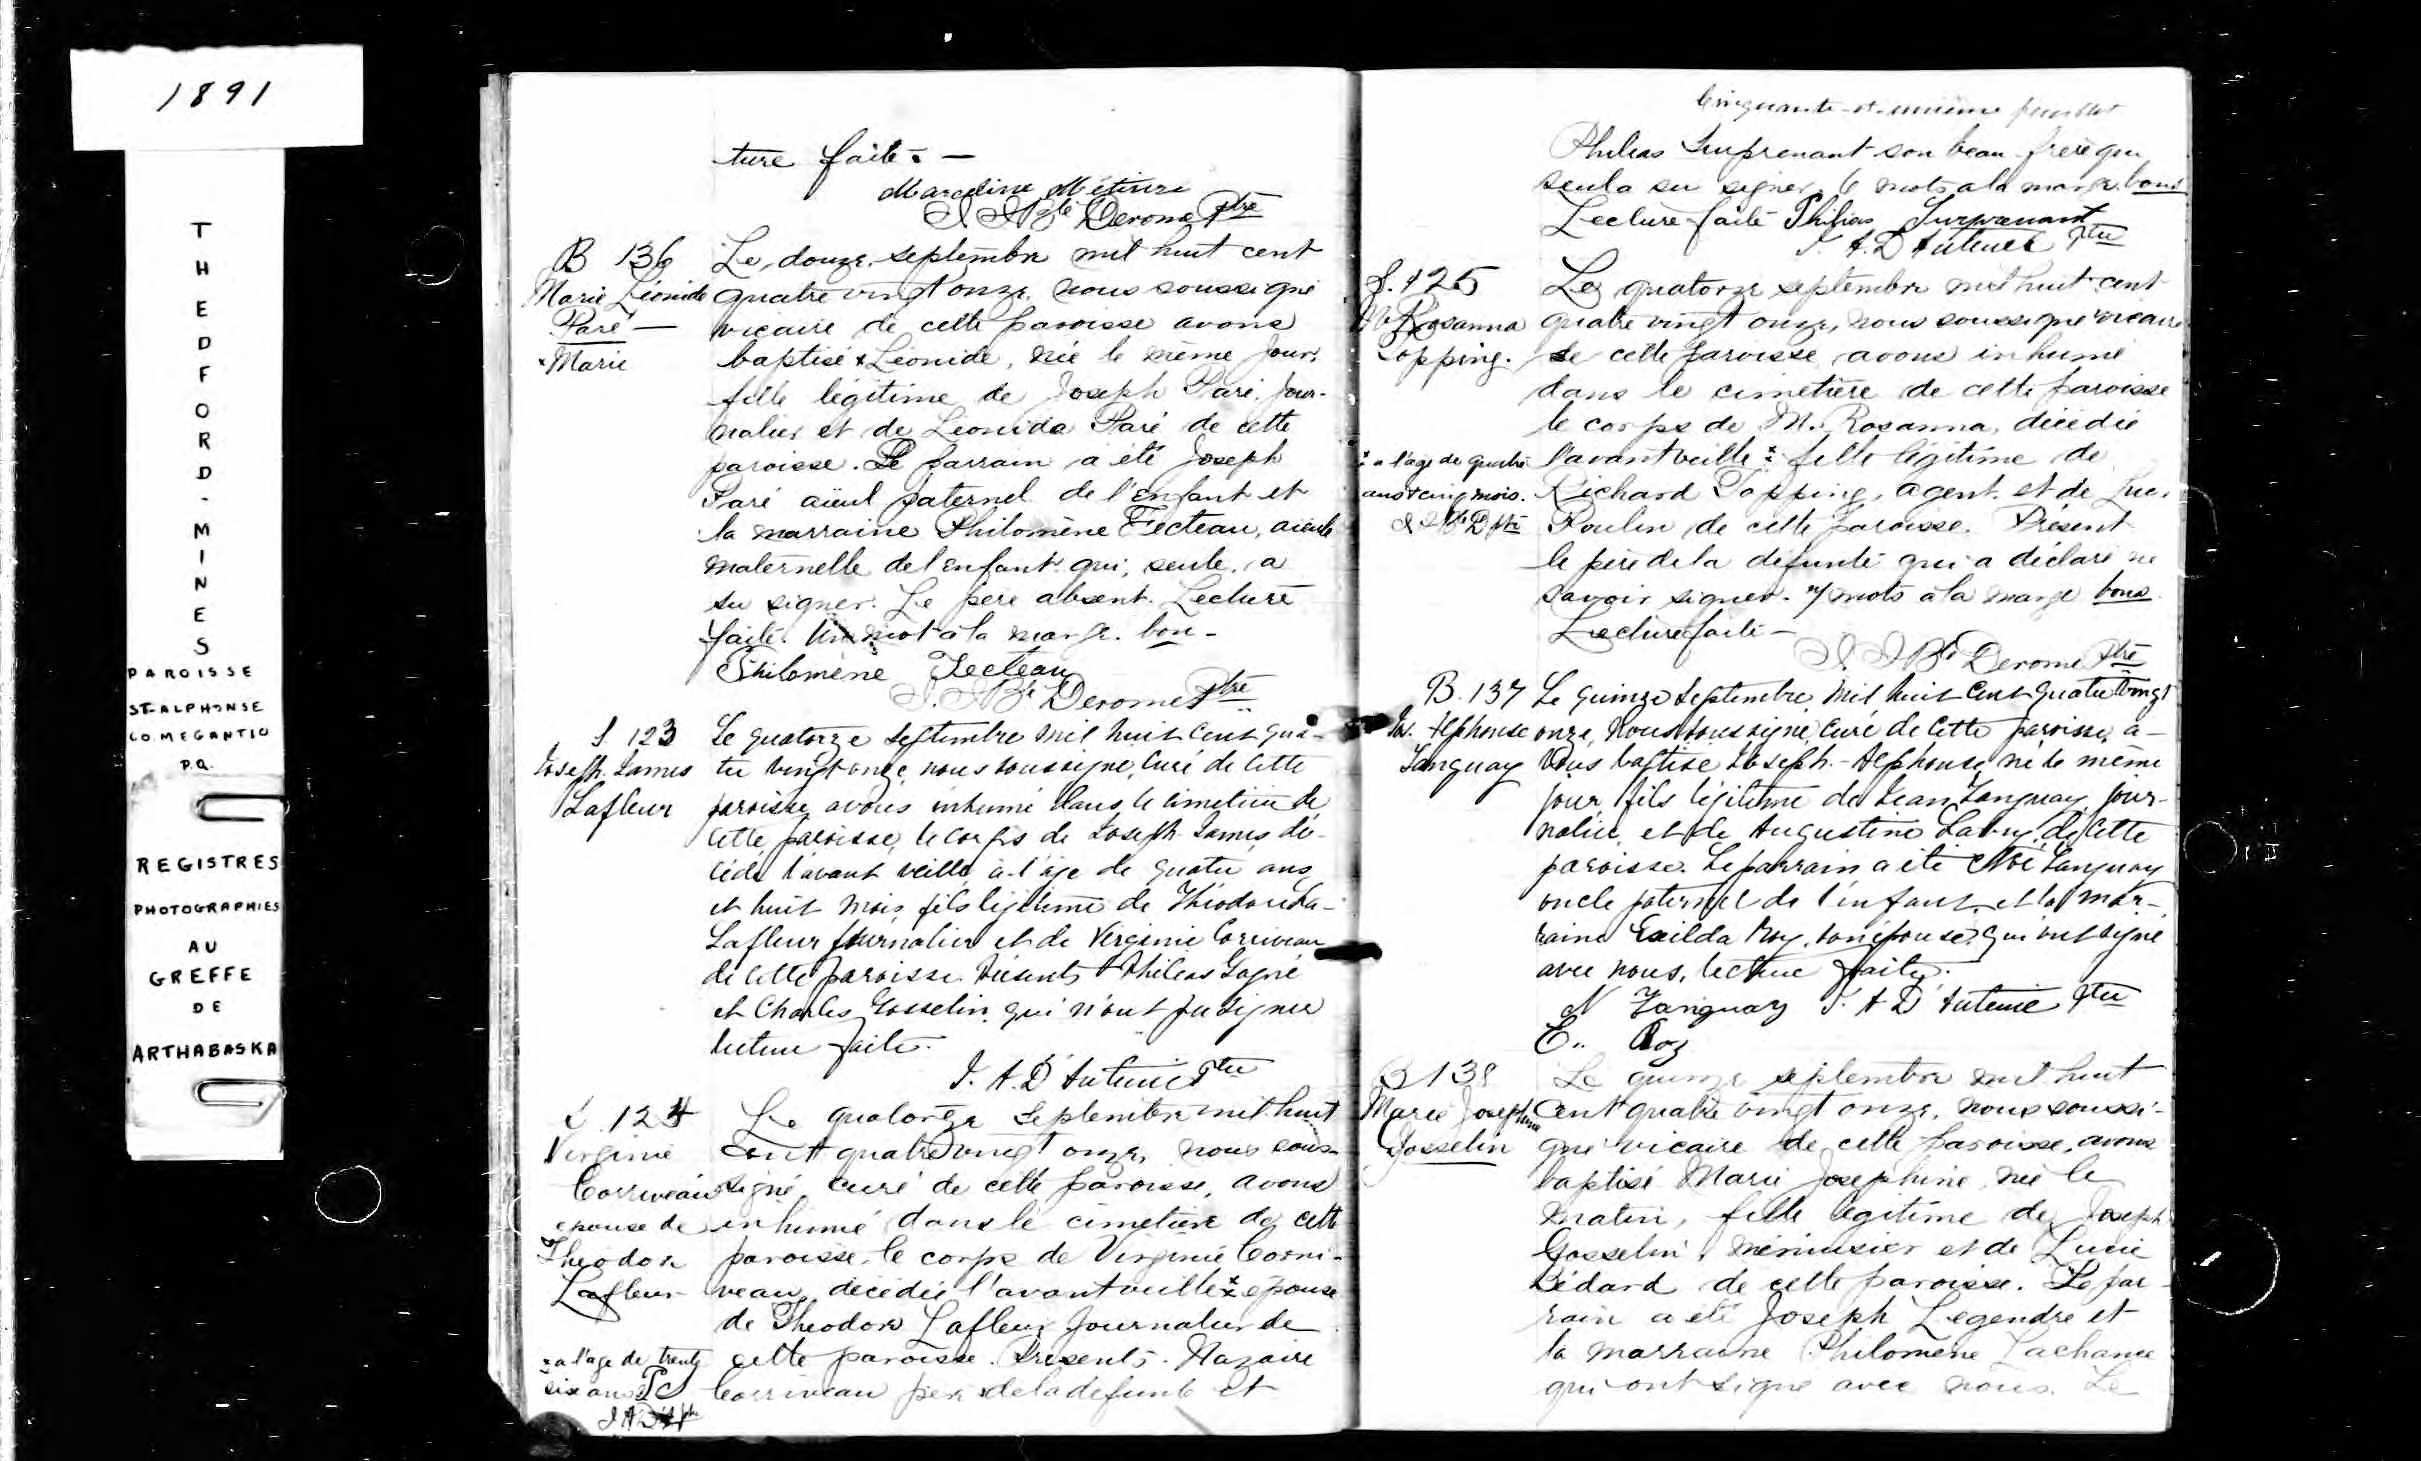 1891
THEDFORD-MINES
PAROISSE
ST-ALPHONSE
CO. MEGANTIC
P.Q.
REGISTRES
PHOTOGRAPHIES
AU
GREFFE
DE
ARTHABASKA
ture faite. —
Marceline Métivier
J. J. Bte Derome Ptre
B 136
Marie Léonide
Paré —
x Marie
Le douze septembre mil huit cent
quatre vingt onze, nous soussigné
vicaire de cette paroisse avons
baptisé x Léonide, née le même jour,
fille légitime de Joseph Paré, jour-
nalier et de Léonida Paré de cette
paroisse. Le parrain a été Joseph
Paré aïeul paternel de l'enfant et
la marraine Philomène Fecteau, aïeule
maternelle de l'enfant qui, seule, a
su signer. Le père absent. Lecture
faite. Un mot à la marge. bon -
Philomène Fecteau
J. J. Bte Derome Ptre
S. 123
Joseph. James
Lafleur
Le quatorze Septembre mil huit cent qua-
tre vingt onze, nous soussigné, Curé de cette
paroisse, avons inhumé dans le cimetière de
cette paroisse, le corps de Joseph James, dé-
cédé l'avant veille, à l'âge de quatre ans
et huit mois, fils légitime de Théodore La-
Lafleur journalier et de Virginie Corriveau
de cette paroisse. Présents Philéas Gagné
et Charles Gosselin, qui n'ont pu signer
lecture faite.
J. A. D'Auteuil Ptre
S. 124
Virginie
Corriveau
épouse de
Théodore
Lafleur
x a l'age de trente
six ans
Le quatorze septembre mil huit
cent quatre vingt onze, nous sous-
signé, curé de cette paroisse, avons
inhumé dans le cimetière de cette
paroisse, le corps de Virginie Corri-
veau, décédée l'avant veille x épouse
de Theodore Lafleur Journalier de
cette paroisse. Présents. Nazaire
Corriveau père de la défunte et
Cinquante-et-unième feuillet
Philias Surprenant son beau-frère qui
seul a su signer. 6 mots à la marge. bons
Lecture faite Philias Surprenant
J. A. D'Auteuil Ptre
S. 125
M. Rosanna
Topping.
x a l'age de quatre
ans & cinq mois.
J J Bte D ptre
Le quatorze septembre mil huit cent
quatre vingt onze, nous soussigné vicaire
de cette paroisse, avons inhumé
dans le cimetière de cette paroisse
le corps de M. Rosanna, décédée
l'avant veille x fille légitime de
Richard Topping, agent. et de Luce
Poulin de cette paroisse. Présent
le père de la défunte qui a déclaré ne
savoir signer. 7 mots à la marge bons.
Lecture faite —
J. J. Bte Derome Ptre
B. 137
Jos. Alphonse
Tanguay
Le quinze Septembre, mil huit cent quatre vingt
onze, Nous soussigné, curé de cette paroisse, a-
vons baptisé Joseph-Alphonse, né le même
jour, fils légitime de Jean Tanguay, jour-
nalier, et de Augustine Labry, de cette
paroisse. Le parrain a été Noé Tanguay
oncle paternel de l'enfant, et la mar-
raine Exilda Roy, son épouse, qui ont signé
avec nous, lecture faite.
N Tanguay J. A D'Auteuil Ptre
E. Roy
B 138
Marie Josephine
Gosselin
Le quinze septembre mil huit
cent quatre vingt onze, nous soussi-
gné vicaire de cette paroisse, avons
baptisé Marie Josephine, née le
matin, fille légitime de Joseph
Gosselin, menuisier et de Lucie
Bédard de cette paroisse. Le par-
rain a été Joseph Legendre et
la marraine Philomène Lachance
qui ont signé avec nous. Le